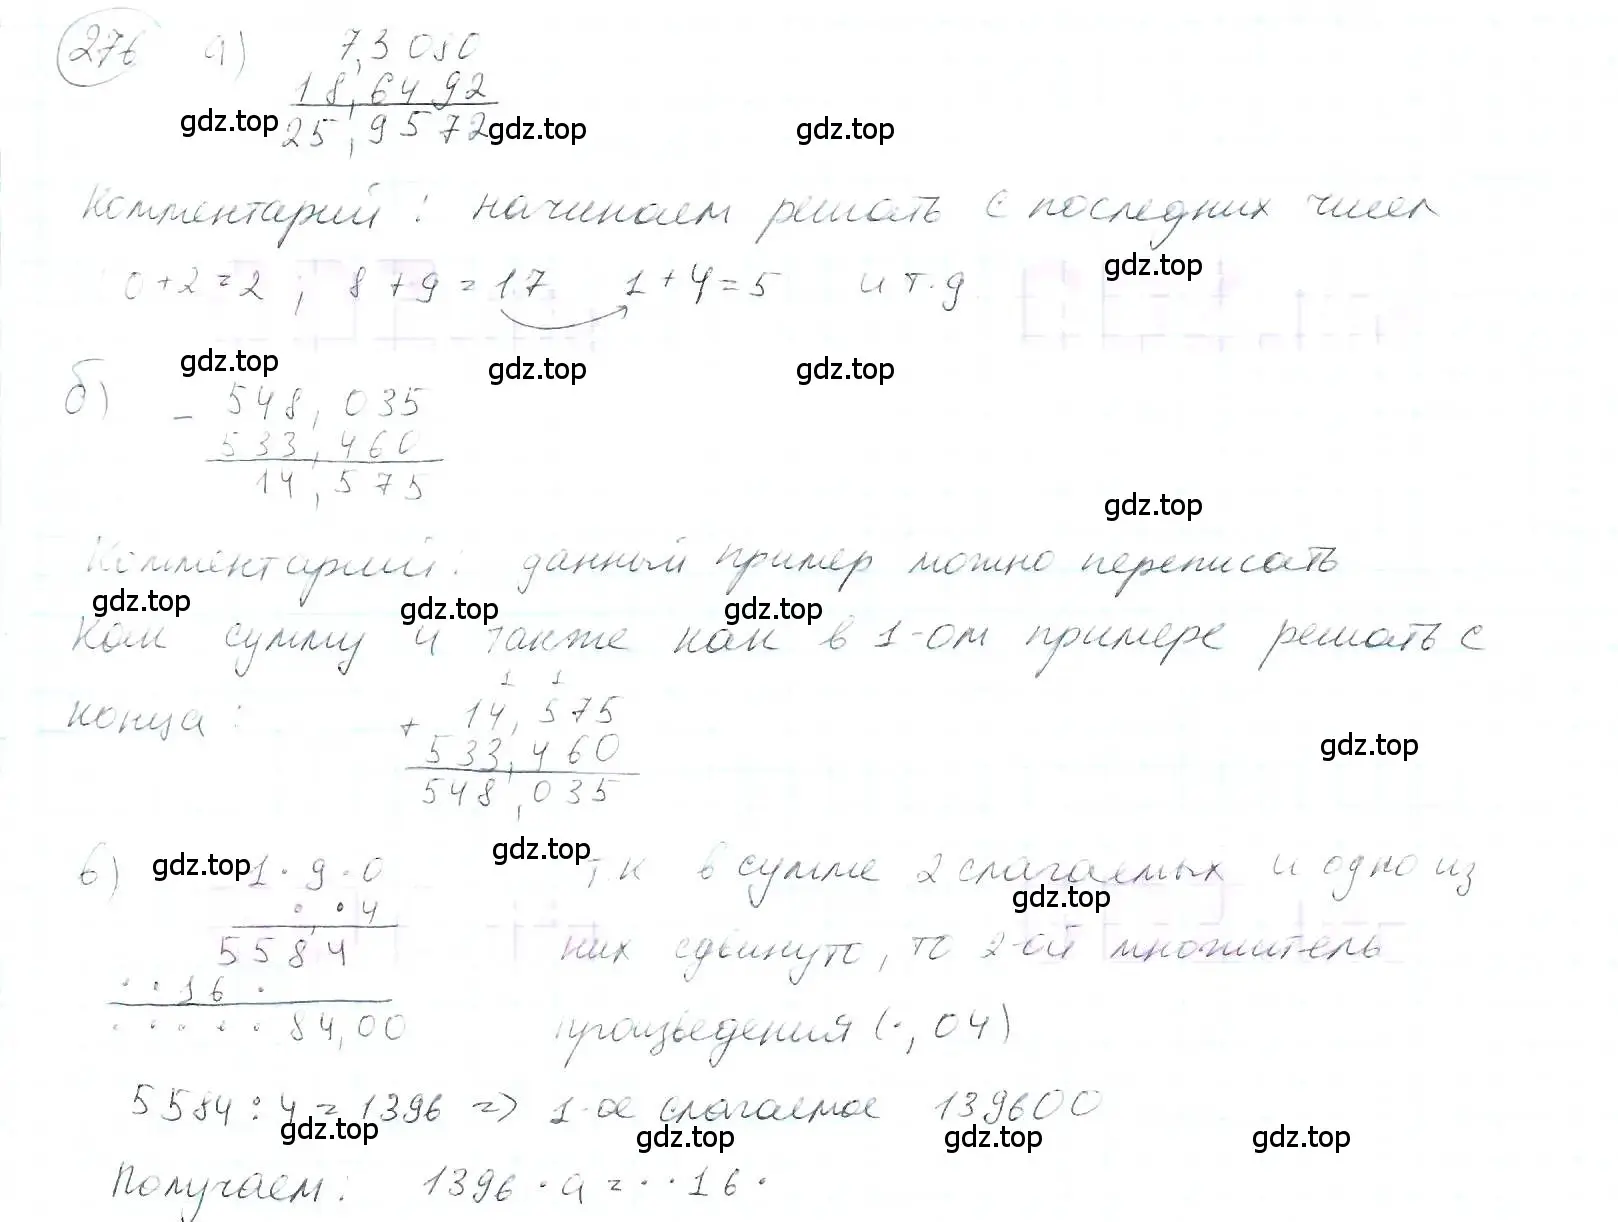 276 а) 7,3080
18,6492
gdz.top 25,9572 gdz.top gdz.top
Комментарий: начинаем решать с последних чисел
gdz.top
0+2=2; 8+9=17 1+4=5 и т.д
gdz.top gdz.top gdz.top
б) - 548,035
533,460
14,575
gdz.top
Комментарий: данный пример можно переписать
gdz.top gdz.top gdz.top
как сумму и также как в 1-ом примере решать с
1 1
конца: + 14,575
533,460
gdz.top
548,035
в) gdz.top 1·9·0 gdz.top т,к в сумме 2 слагаемых и одно из
· ·4 gdz.top
5584 них сдвинуто, то 2-ой множитель
··16·
·····84,00 произведения (·,04)
5584:4=1396 => 1-ое слагаемое 139600
gdz.top gdz.top gdz.top gdz.top
Получаем: 1396·а=··16·